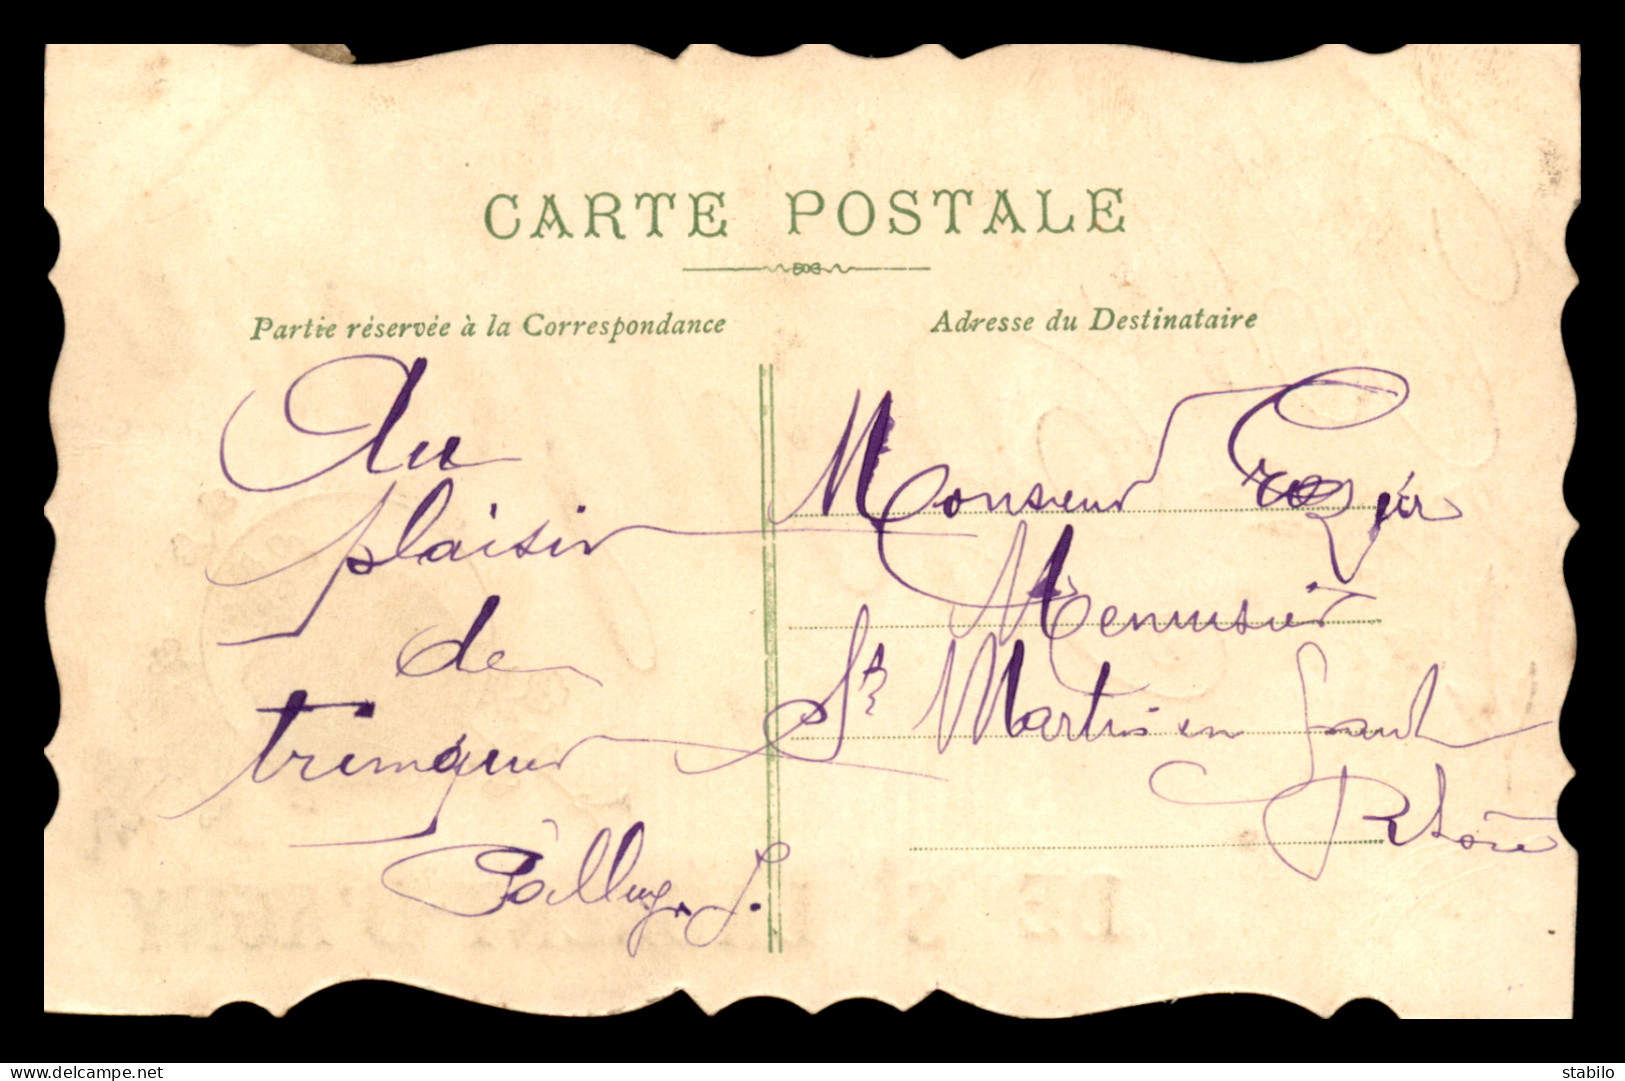 CARTE POSTALE
Partie réservée à la Correspondance
Au
plaisir
de
trinquer
Adresse du Destinataire
Monsieur Crozier
Menuisier
St Martin en Haut
Rhône
www.delcampe.net
stabilo